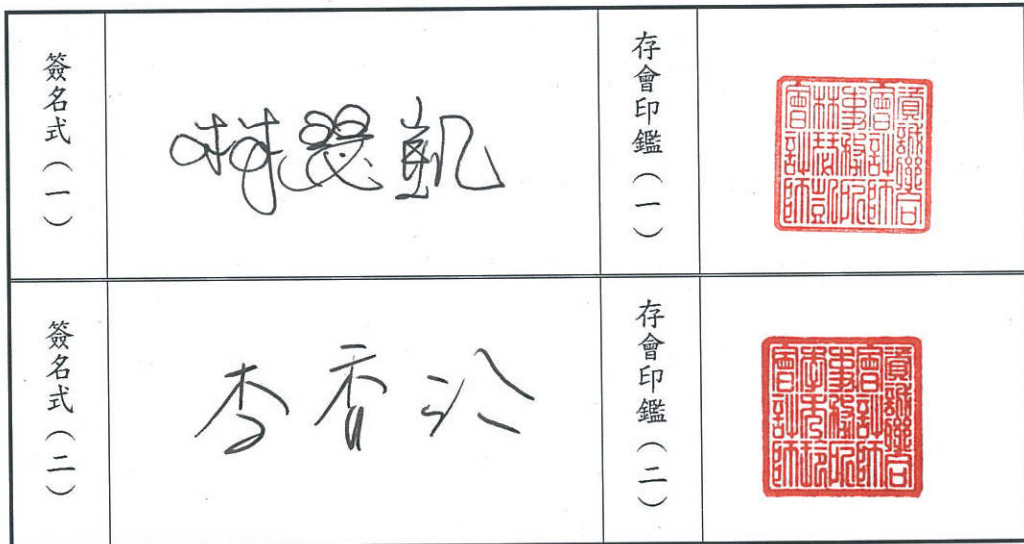 簽名式（一）
林瑟凱
存會印鑑（一）
資誠聯合
會計師
事務所
林瑟凱
會計師
簽名式（二）
李秀玲
存會印鑑（二）
資誠聯合
會計師
事務所
李秀玲
會計師